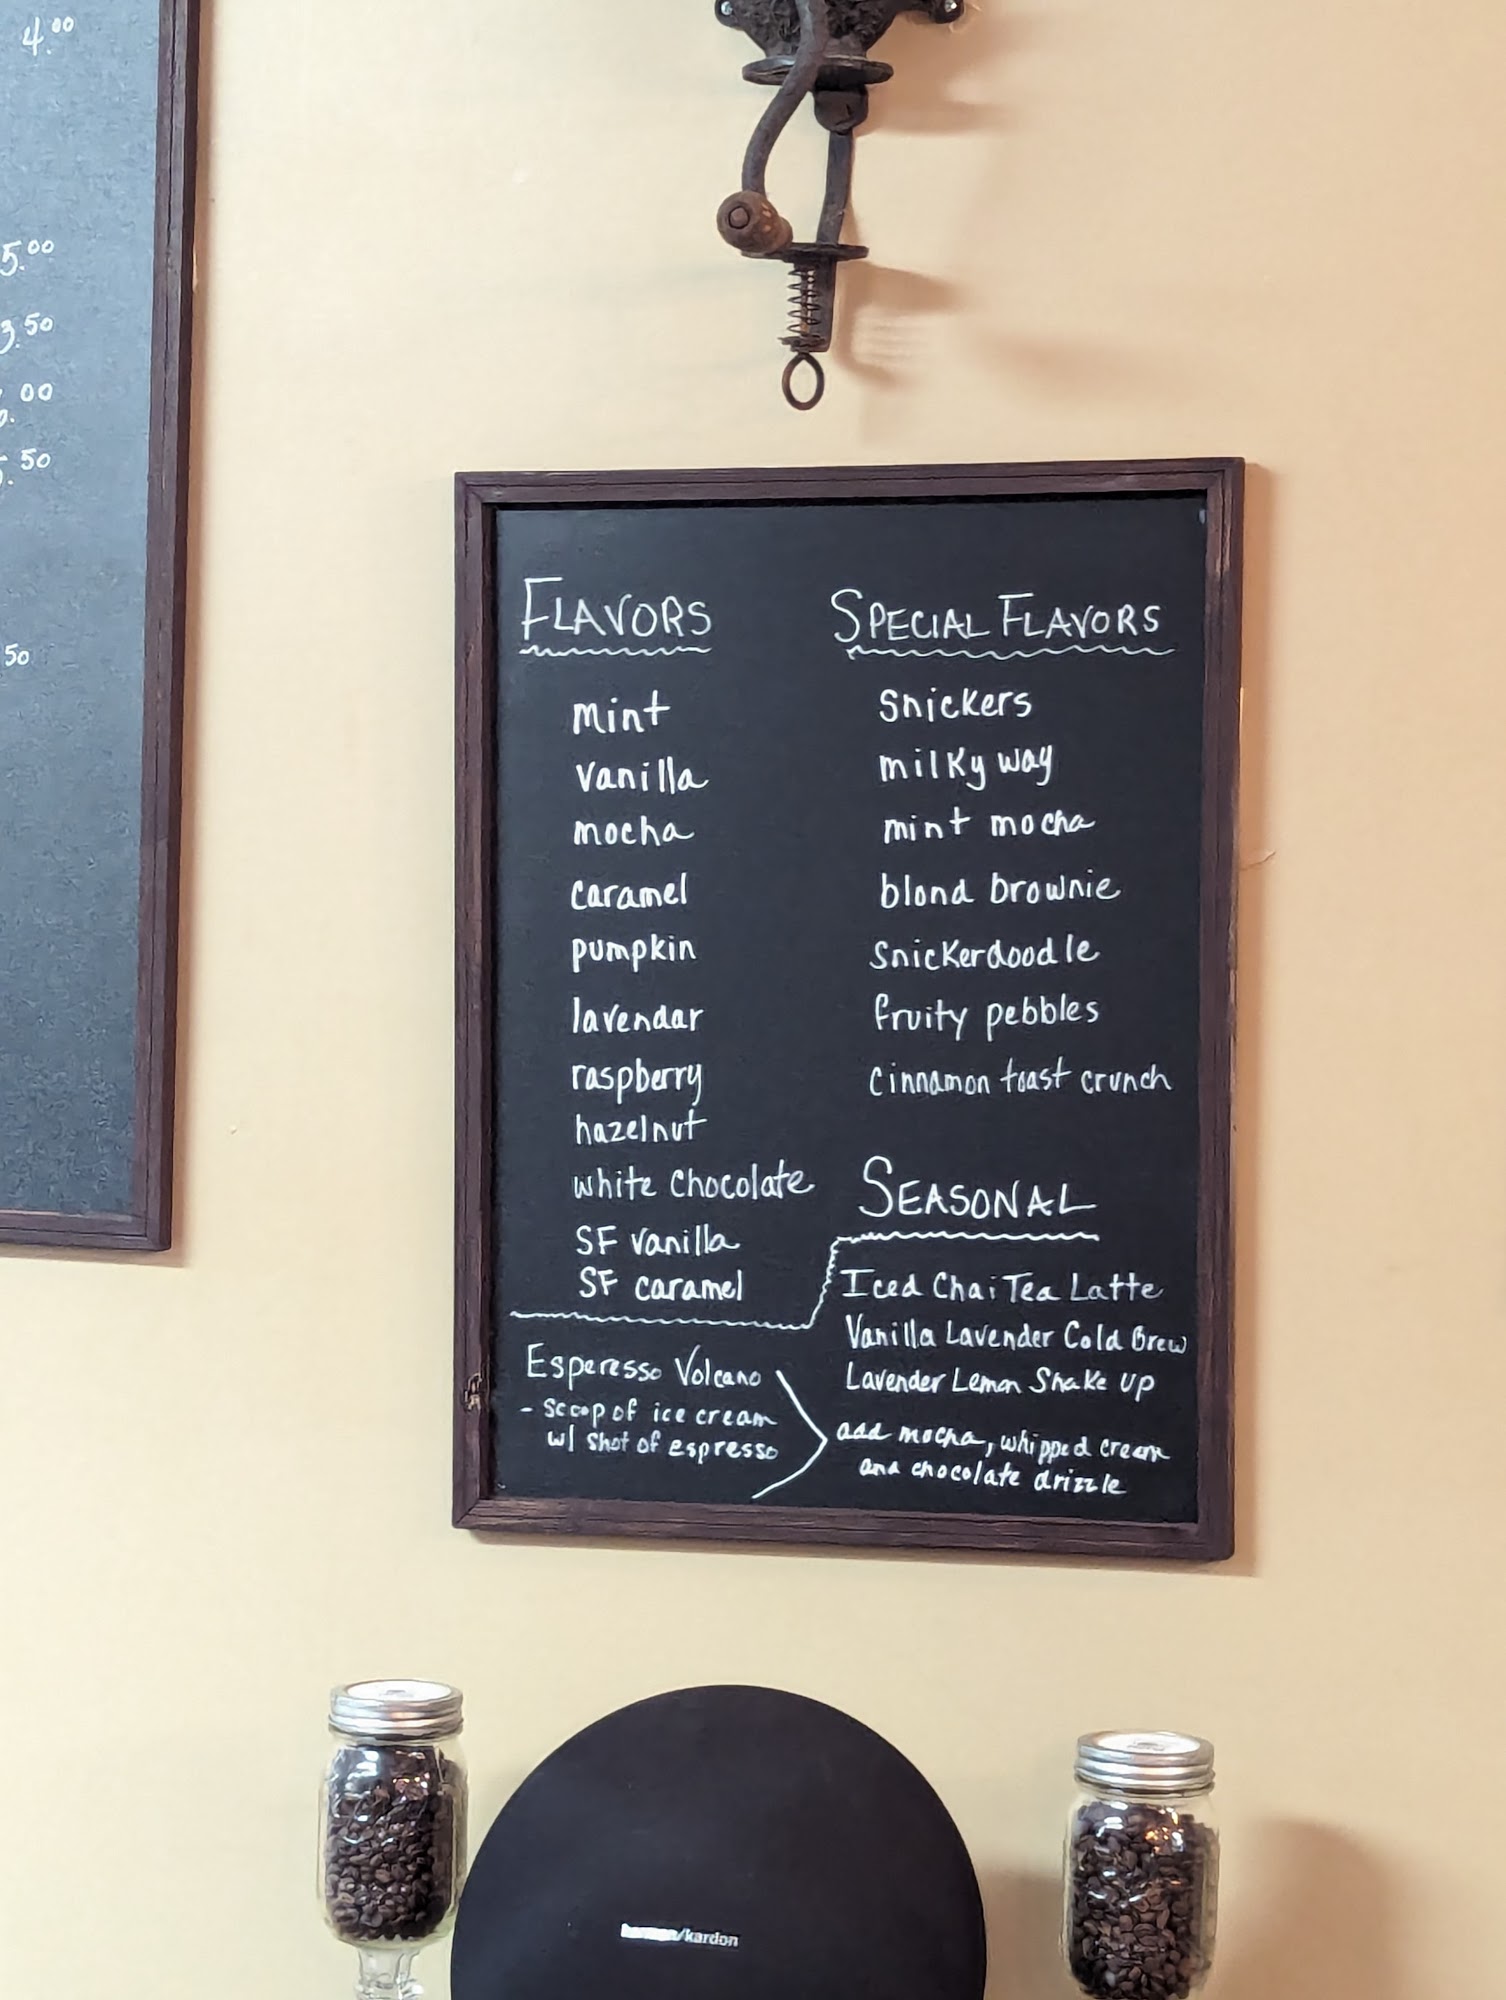 4.00
5.00
3.50
.00
.50
50
FLAVORS
mint
vanilla
mocha
caramel
pumpkin
lavendar
raspberry
hazelnut
white chocolate
SF vanilla
SF caramel
SPECIAL FLAVORS
snickers
milky way
mint mocha
blond brownie
snickerdoodle
fruity pebbles
cinnamon toast crunch
SEASONAL
Iced Chai Tea Latte
Vanilla Lavender Cold Brew
Lavender Lemon Shake up
Esperesso Volcano
- scoop of ice cream
w/ shot of espresso
add mocha, whipped cream
and chocolate drizzle
harman/kardon